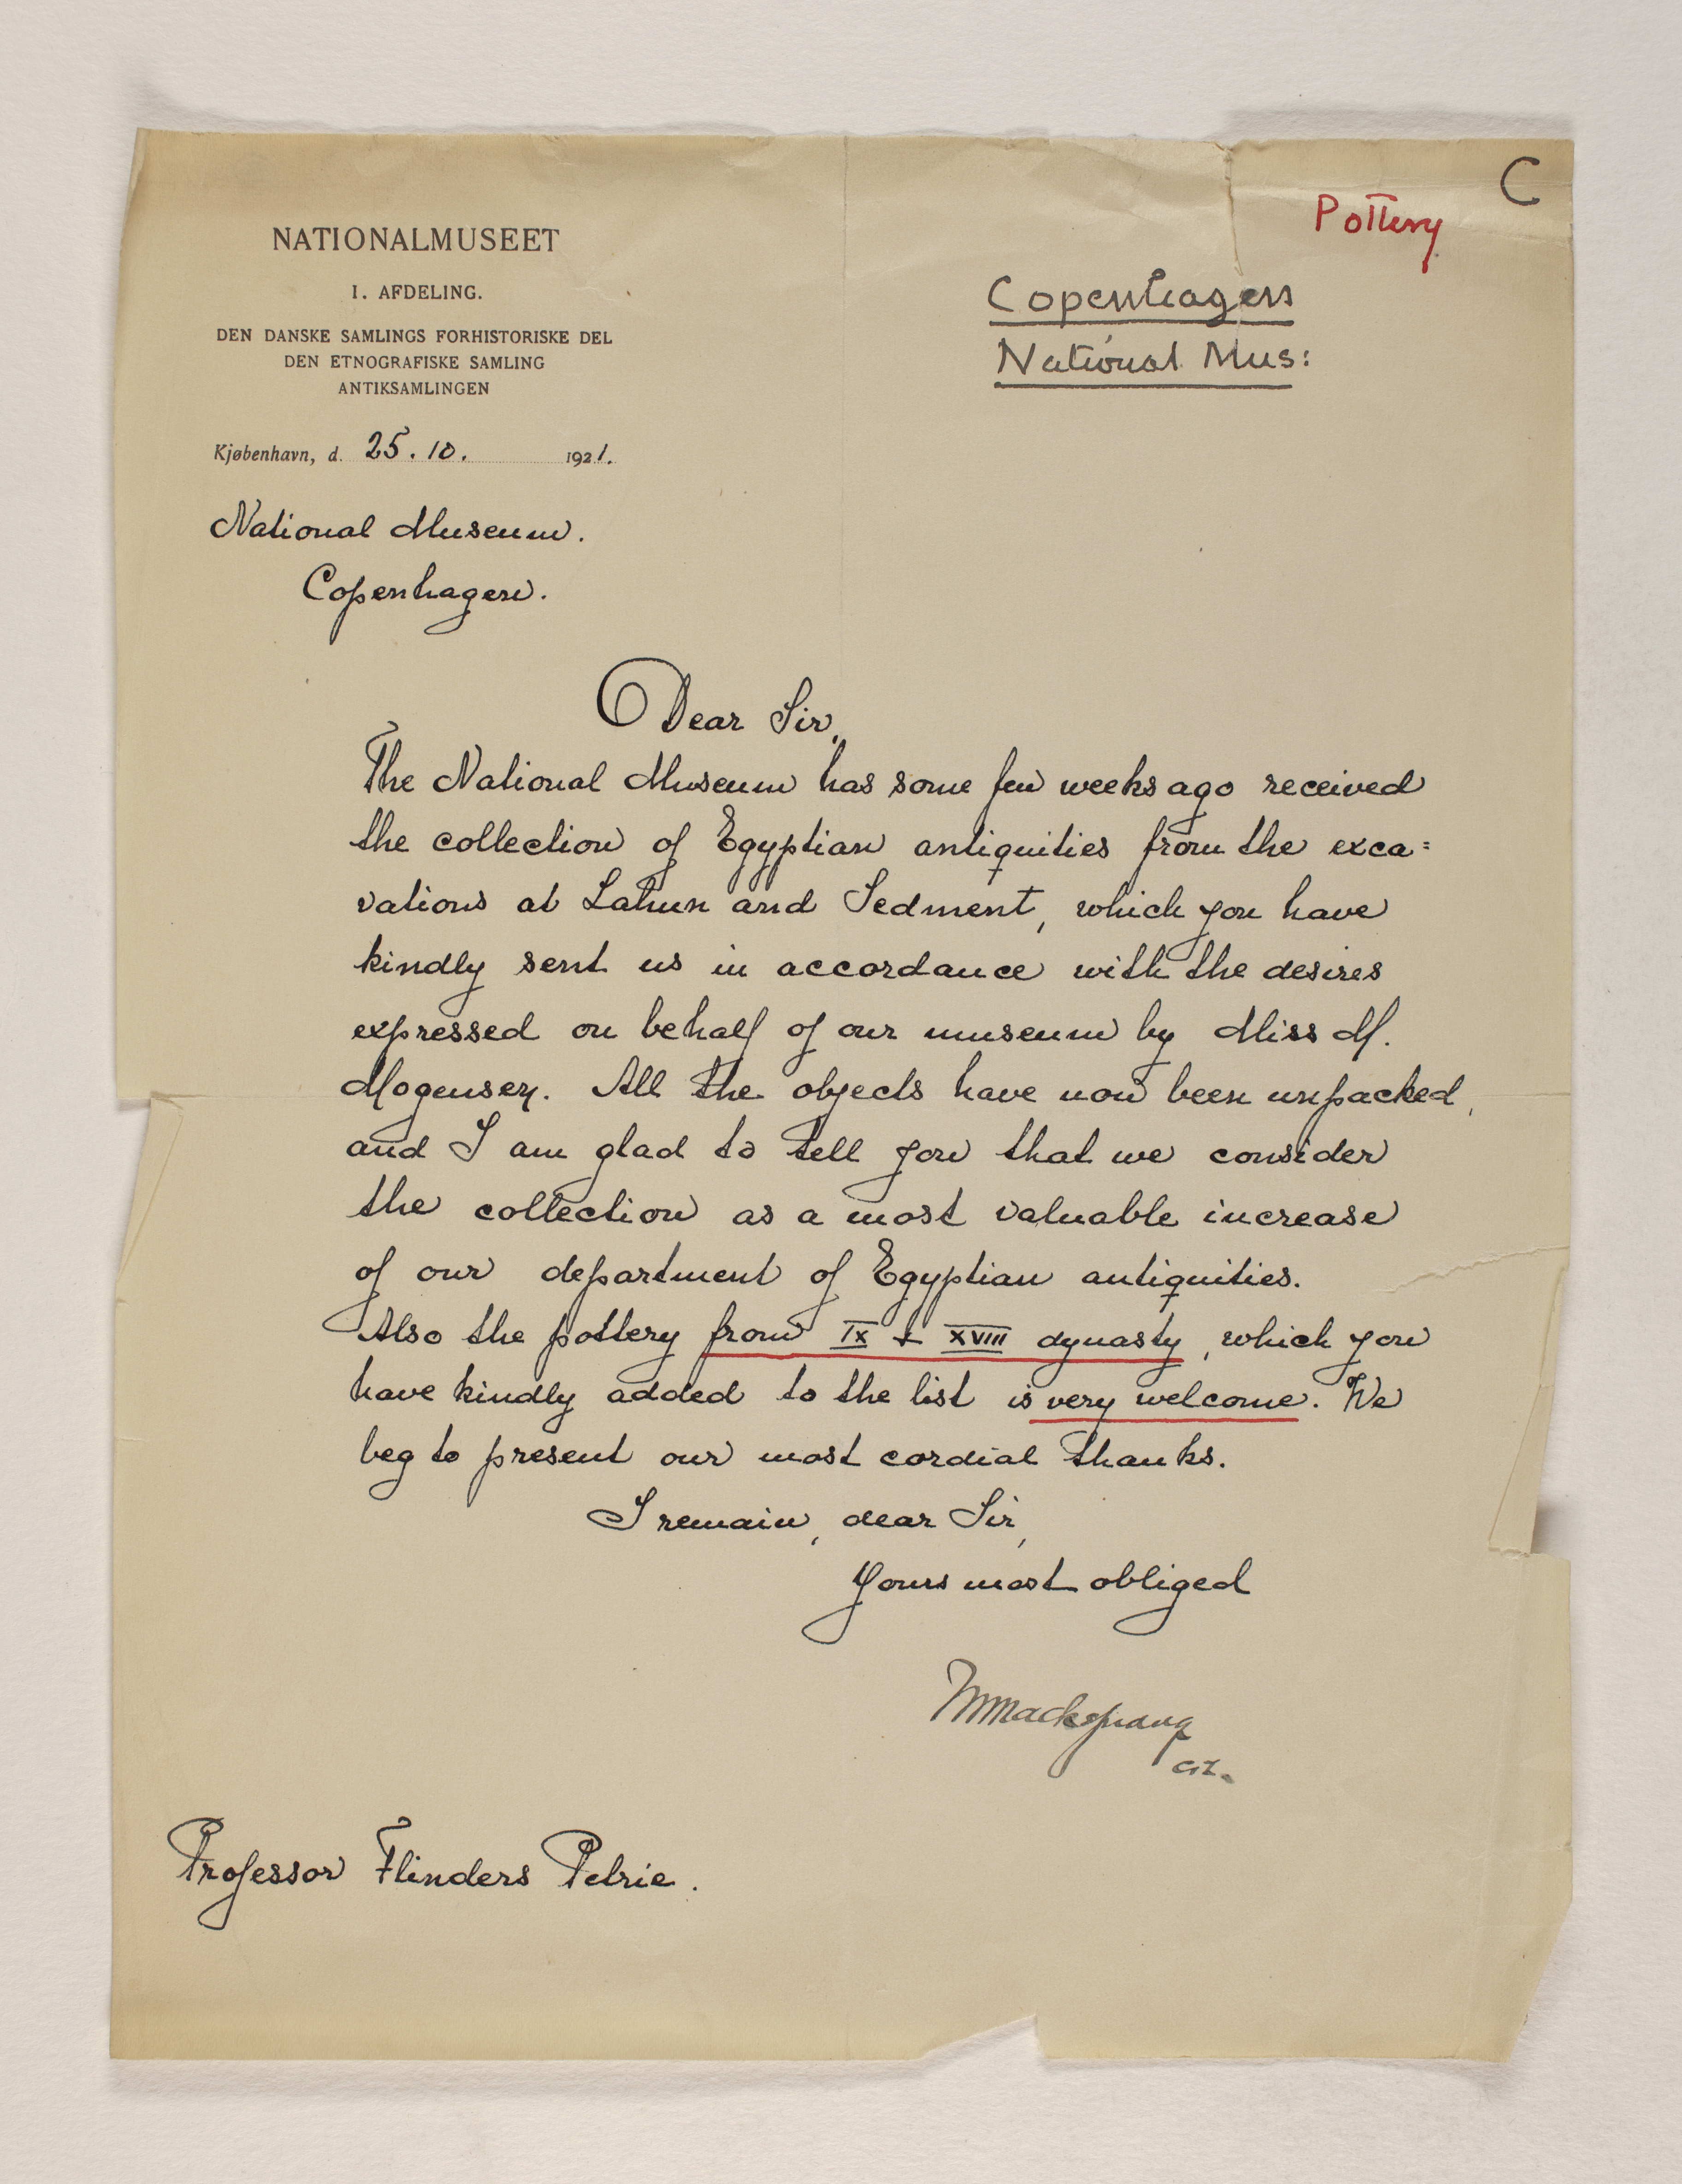 C
Pottery
NATIONALMUSEET
I. AFDELING.
DEN DANSKE SAMLINGS FORHISTORISKE DEL
DEN ETNOGRAFISKE SAMLING
ANTIKSAMLINGEN
Copenhagen
National Mus:
Kjøbenhavn, d. 25.10. 1921.
National Museum.
Copenhagen.
Dear Sir,
The National Museum has some few weeks ago received
the collection of Egyptian antiquities from the exca=
vations at Lahun and Sedment, which you have
kindly sent us in accordance with the desires
expressed on behalf of our museum by Miss M.
Mogensen. All the objects have now been unpacked,
and I am glad to tell you that we consider
the collection as a most valuable increase
of our department of Egyptian antiquities.
Also the pottery from IX + XVIII dynasty, which you
have kindly added to the list is very welcome. We
beg to present our most cordial thanks.
I remain, dear Sir,
Yours most obliged
Mackeprang
Professor Flinders Petrie.